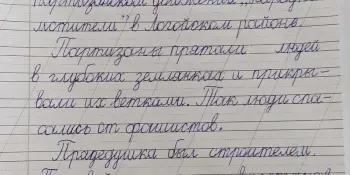 мстители" в Логойском районе.
Партизаны прятали людей
в глубоких землянках и прикры-
вали их ветками. Так люди спа-
сались от фашистов.
Прадедушка был строителем.